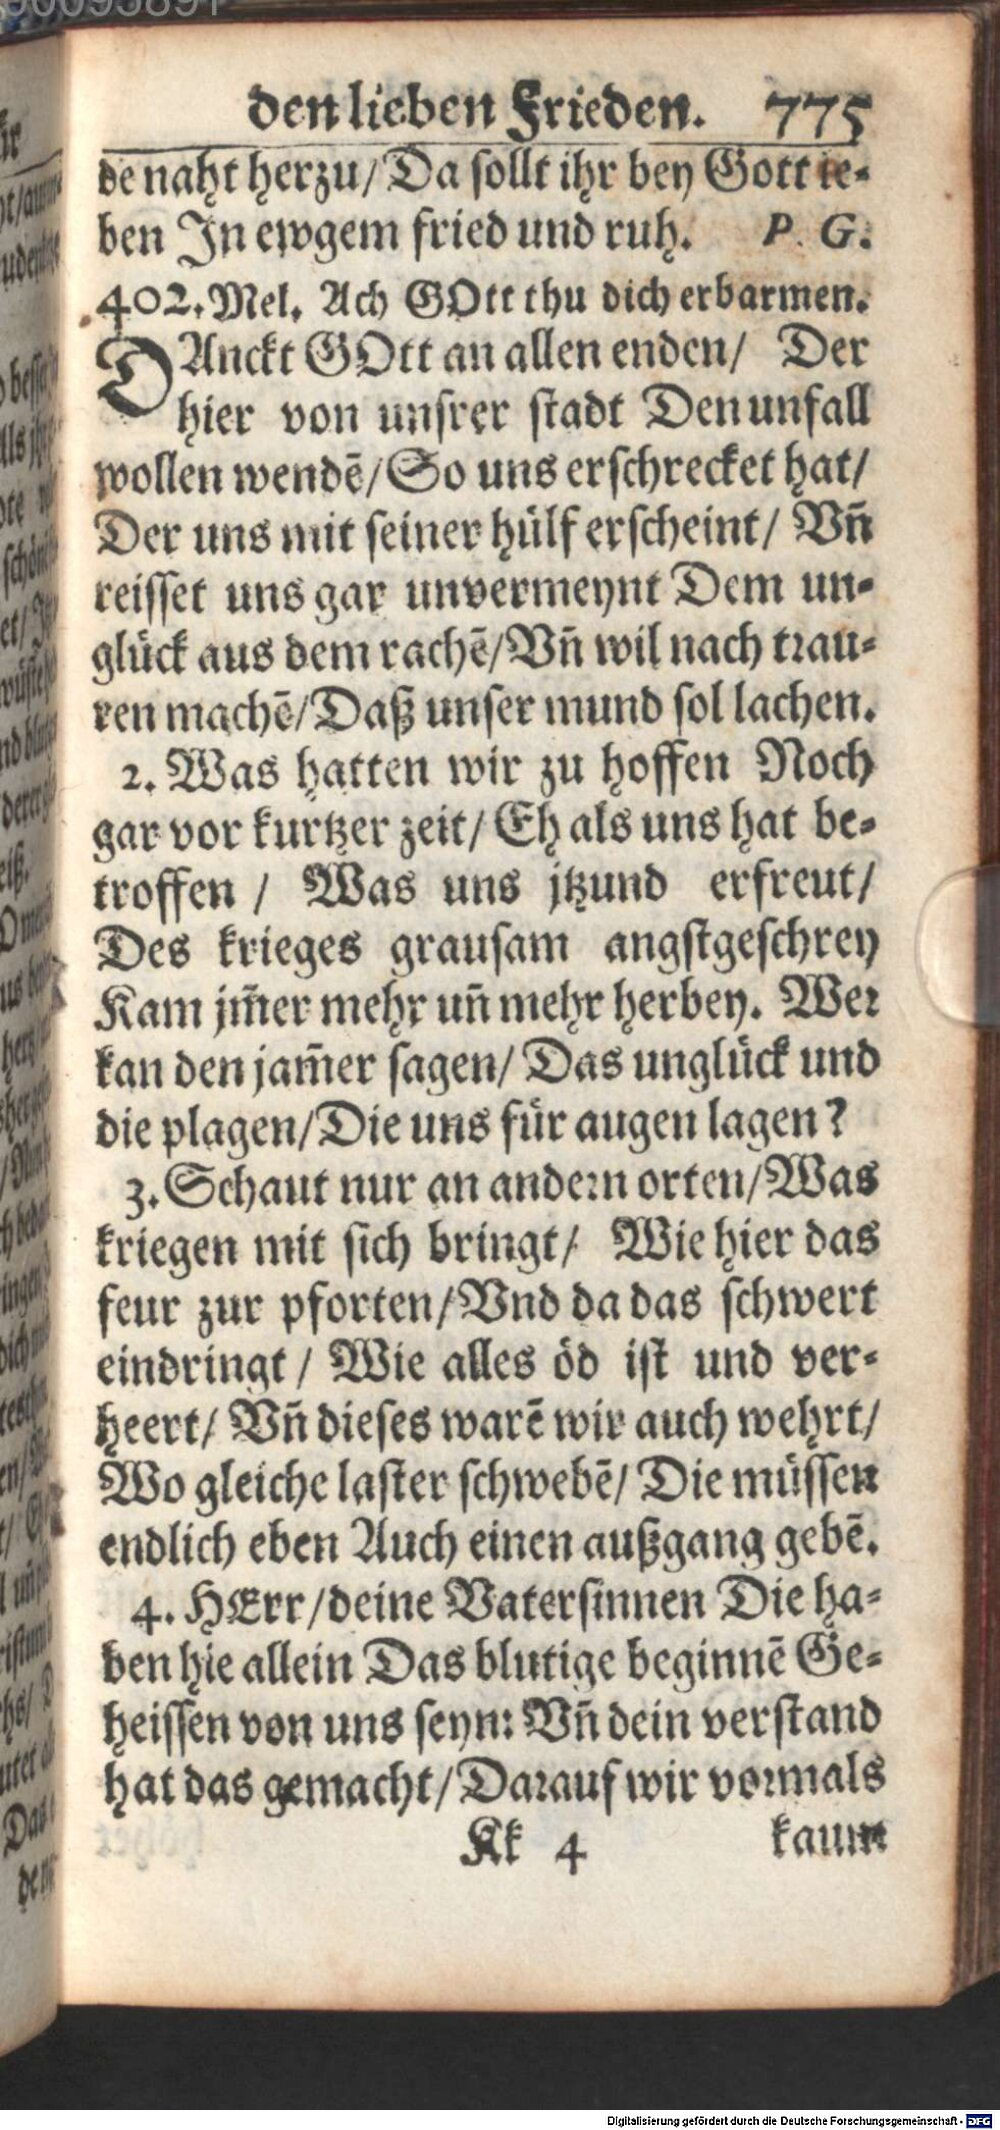 den lieben Frieden. 775
de naht herzu/ Da sollt ihr bey Gott le-
ben In ewgem fried und ruh. P. G.
402. Mel. Ach GOtt thu dich erbarmen.
DAnckt GOtt an allen enden/ Der
hier von unsrer stadt Den unfall
wollen wendē/ So uns erschrecket hat/
Der uns mit seiner hülf erscheint/ Vn̄
reisset uns gar unvermeynt Dem un-
glück aus dem rachē/ Vn̄ wil nach trau-
ren machē/ Daß unser mund sol lachen.
2. Was hatten wir zu hoffen Noch
gar vor kurtzer zeit/ Eh als uns hat be-
troffen / Was uns jtzund erfreut/
Des krieges grausam angstgeschrey
Kam jm̄er mehr un̄ mehr herbey. Wer
kan den jam̄er sagen/ Das unglück und
die plagen/ Die uns für augen lagen?
3. Schaut nur an andern orten/ Was
kriegen mit sich bringt/ Wie hier das
feur zur pforten/ Vnd da das schwert
eindringt / Wie alles öd ist und ver-
heert/ Vn̄ dieses warē wir auch wehrt/
Wo gleiche laster schwebē/ Die müssen
endlich eben Auch einen außgang gebē.
4. HErr/ deine Vatersinnen Die ha-
ben hie allein Das blutige beginnē Ge-
heissen von uns seyn: Vn̄ dein verstand
hat das gemacht/ Darauf wir vormals
Kk 4 kaum
Digitalisierung gefördert durch die Deutsche Forschungsgemeinschaft - DFG